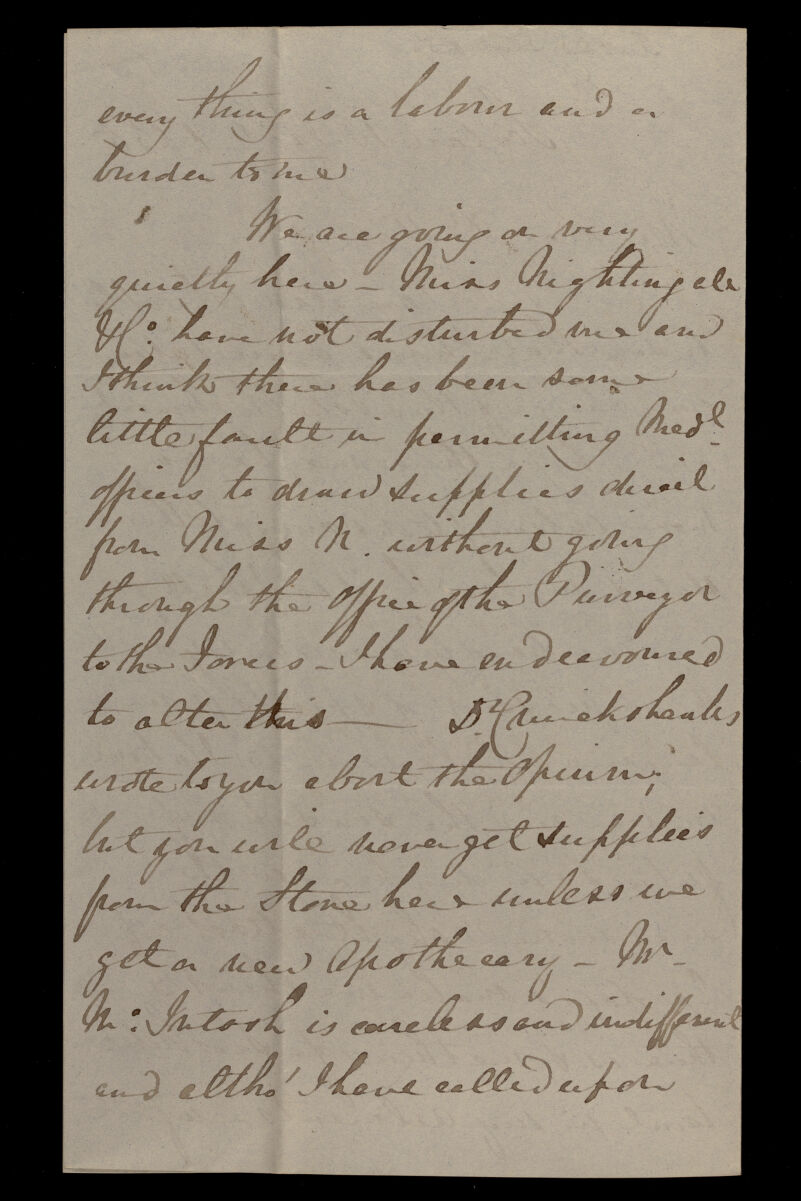 every thing is a labour and a
burden to me
We are going on very
quietly here – Miss Nightingale
& Co. have not disturbed me and
I think there has been some
little fault in permitting Medl.
officers to draw supplies direct
from Miss N. without going
through the Office of the Purveyor
to the Forces – I have endeavoured
to alter this — Dr. Cruickshanks
wrote to you about the Opium;
but you will never get supplies
from the Store here unless we
get a new Apothecary – Mr
Mc. Intosh is careless and indifferent
and altho' I have called upon